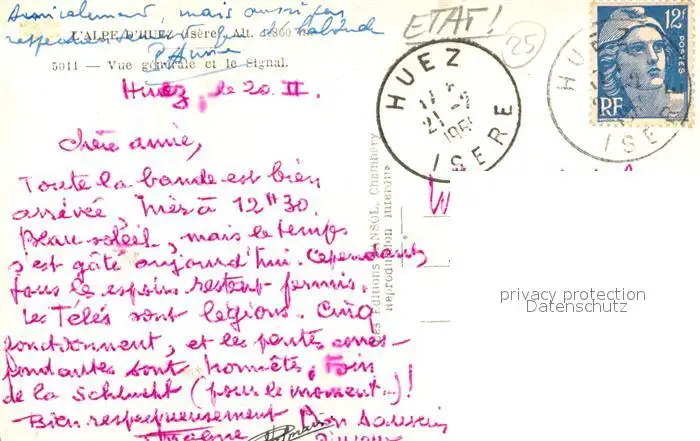 Amicalement, mais aussi pas
L'ALPE D'HUEZ (Isère) Alt. 1860 m
5011 - Vue générale et le Signal.
Huez, le 20. II.
Chère annie,
Toute la bande est bien
arrivée, hier à 12H30.
Beau soleil, mais le temps
s'est gâté aujourd'hui. Cependant
tous les espoirs restent permis.
Les Télés sont légions. Cinq
fonctionnent, et les pentes corres-
pondantes sont honnêtes, loin
de la Schlucht (pour le moment...)!
Bien respectueusement
Les Editions Chambéry
Reproduction interdite
ETAT!
25
HUEZ
21-2
ISERE
12F
POSTES
RF
HUEZ
ISERE
privacy protection
Datenschutz